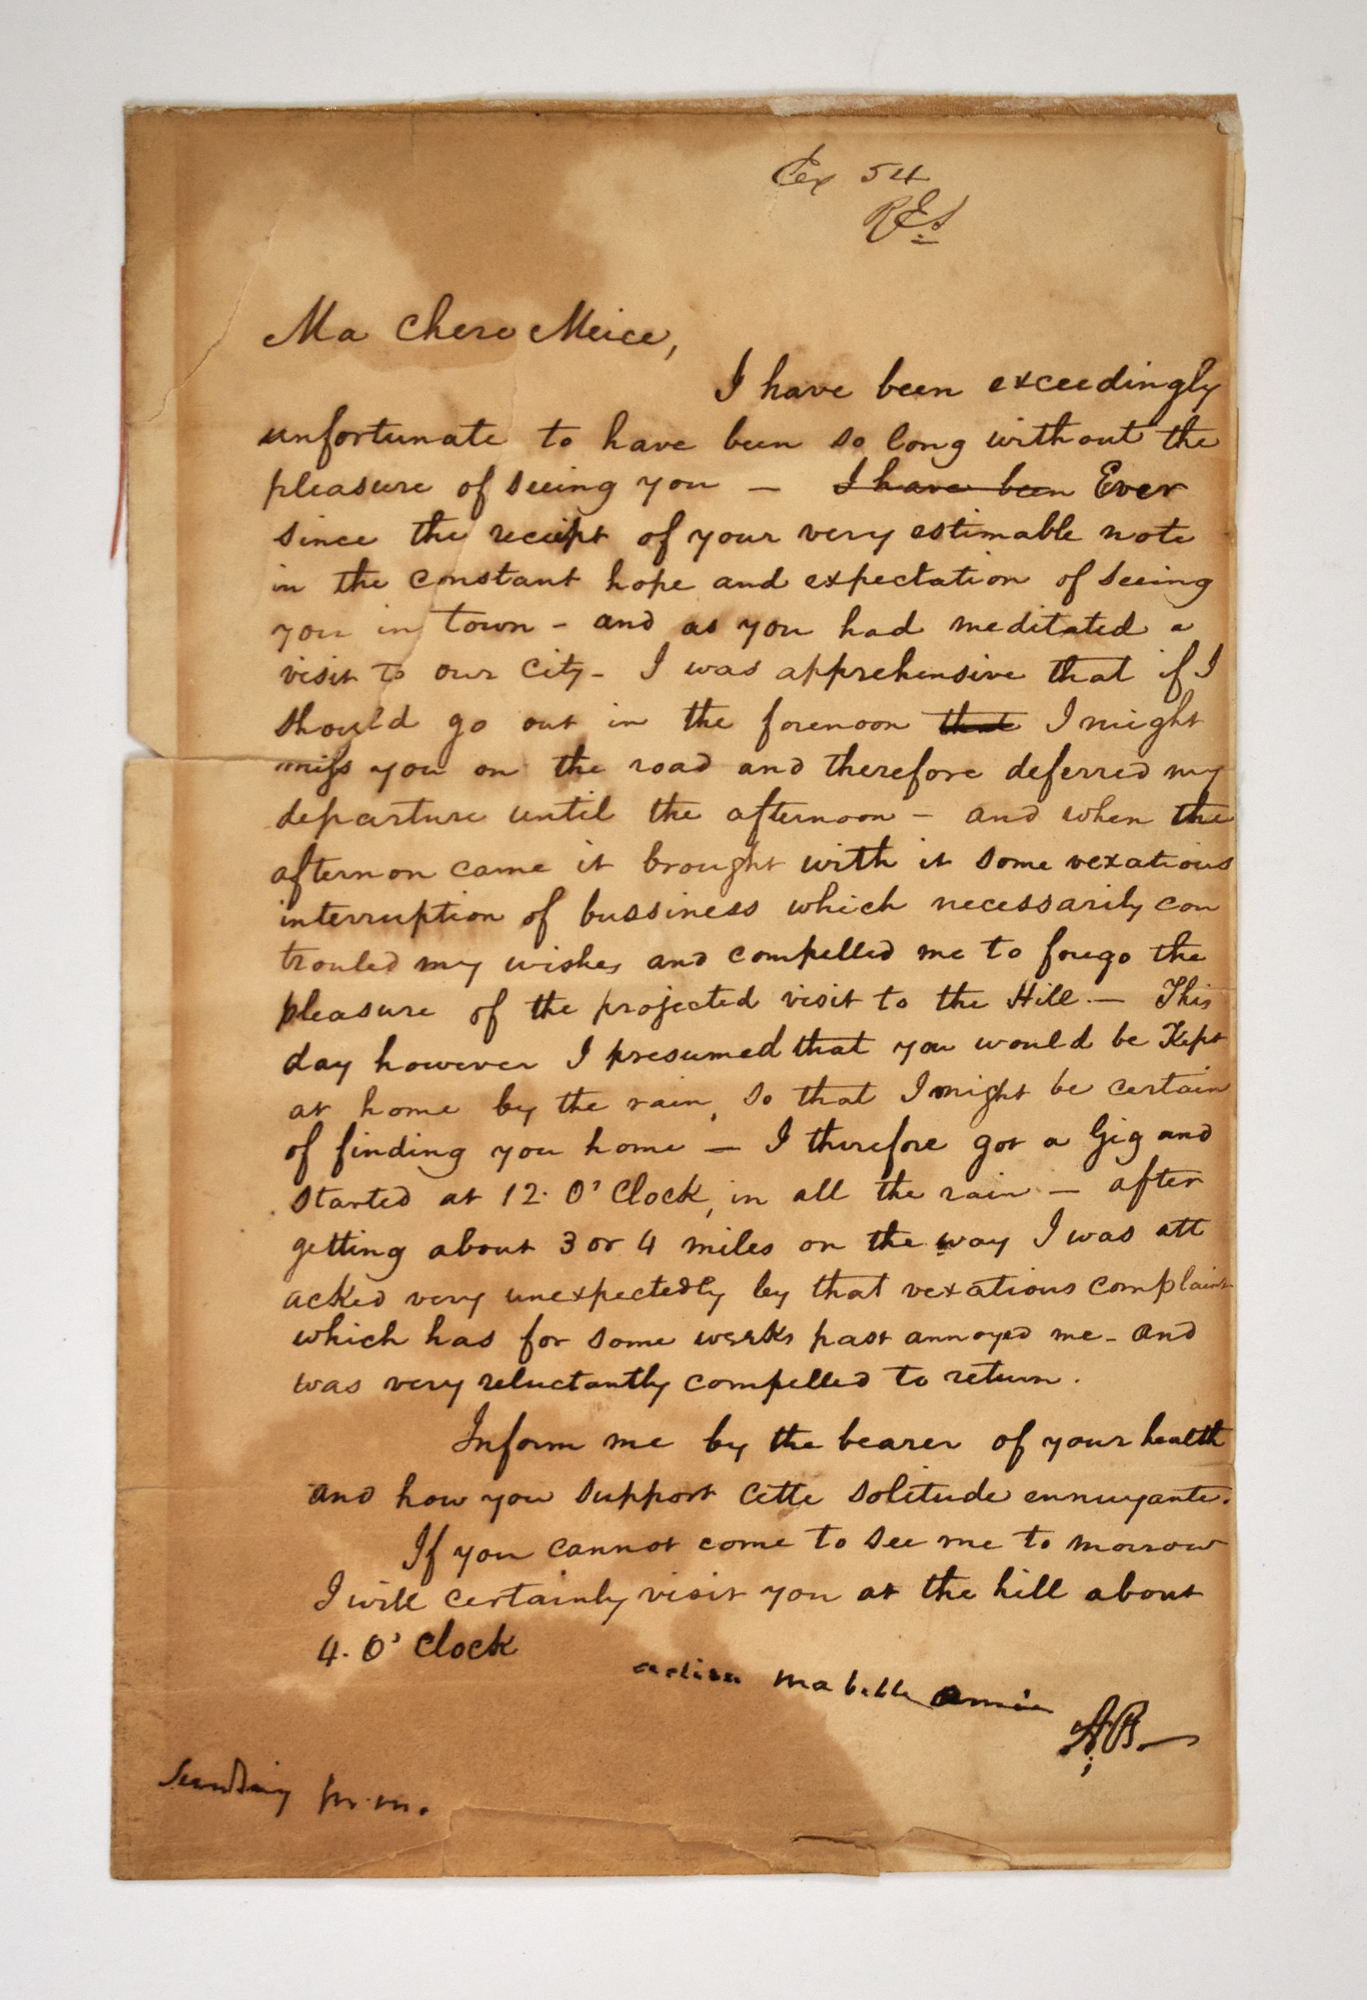 Ex 54
RES
Ma chere Meice,
I have been exceedingly
unfortunate to have been so long without the
pleasure of seeing you — I have been Ever
since the receipt of your very estimable note
in the constant hope and expectation of seeing
you in town - and as you had meditated a
visit to our city - I was apprehensive that if I
should go out in the forenoon that I might
miss you on the road and therefore deferred my
departure until the afternoon - and when the
afternoon came it brought with it some vexatious
interruption of bussiness which necessarily con
trouled my wishes and compelled me to forego the
pleasure of the projected visit to the Hill — This
day however I presumed that you would be Kept
at home by the rain, so that I might be certain
of finding you home — I therefore got a Gig and
started at 12. O' Clock, in all the rain — after
getting about 3 or 4 miles on the way I was att
acked very unexpectedly by that vexatious complaint
which has for some weeks past annoyed me - and
was very reluctantly compelled to return.
Inform me by the bearer of your health
and how you support cette solitude ennuyante.
If you cannot come to see me to morrow
I will certainly visit you at the hill about
4. O' Clock
adieu ma belle amie
AB
Sunday p.m.